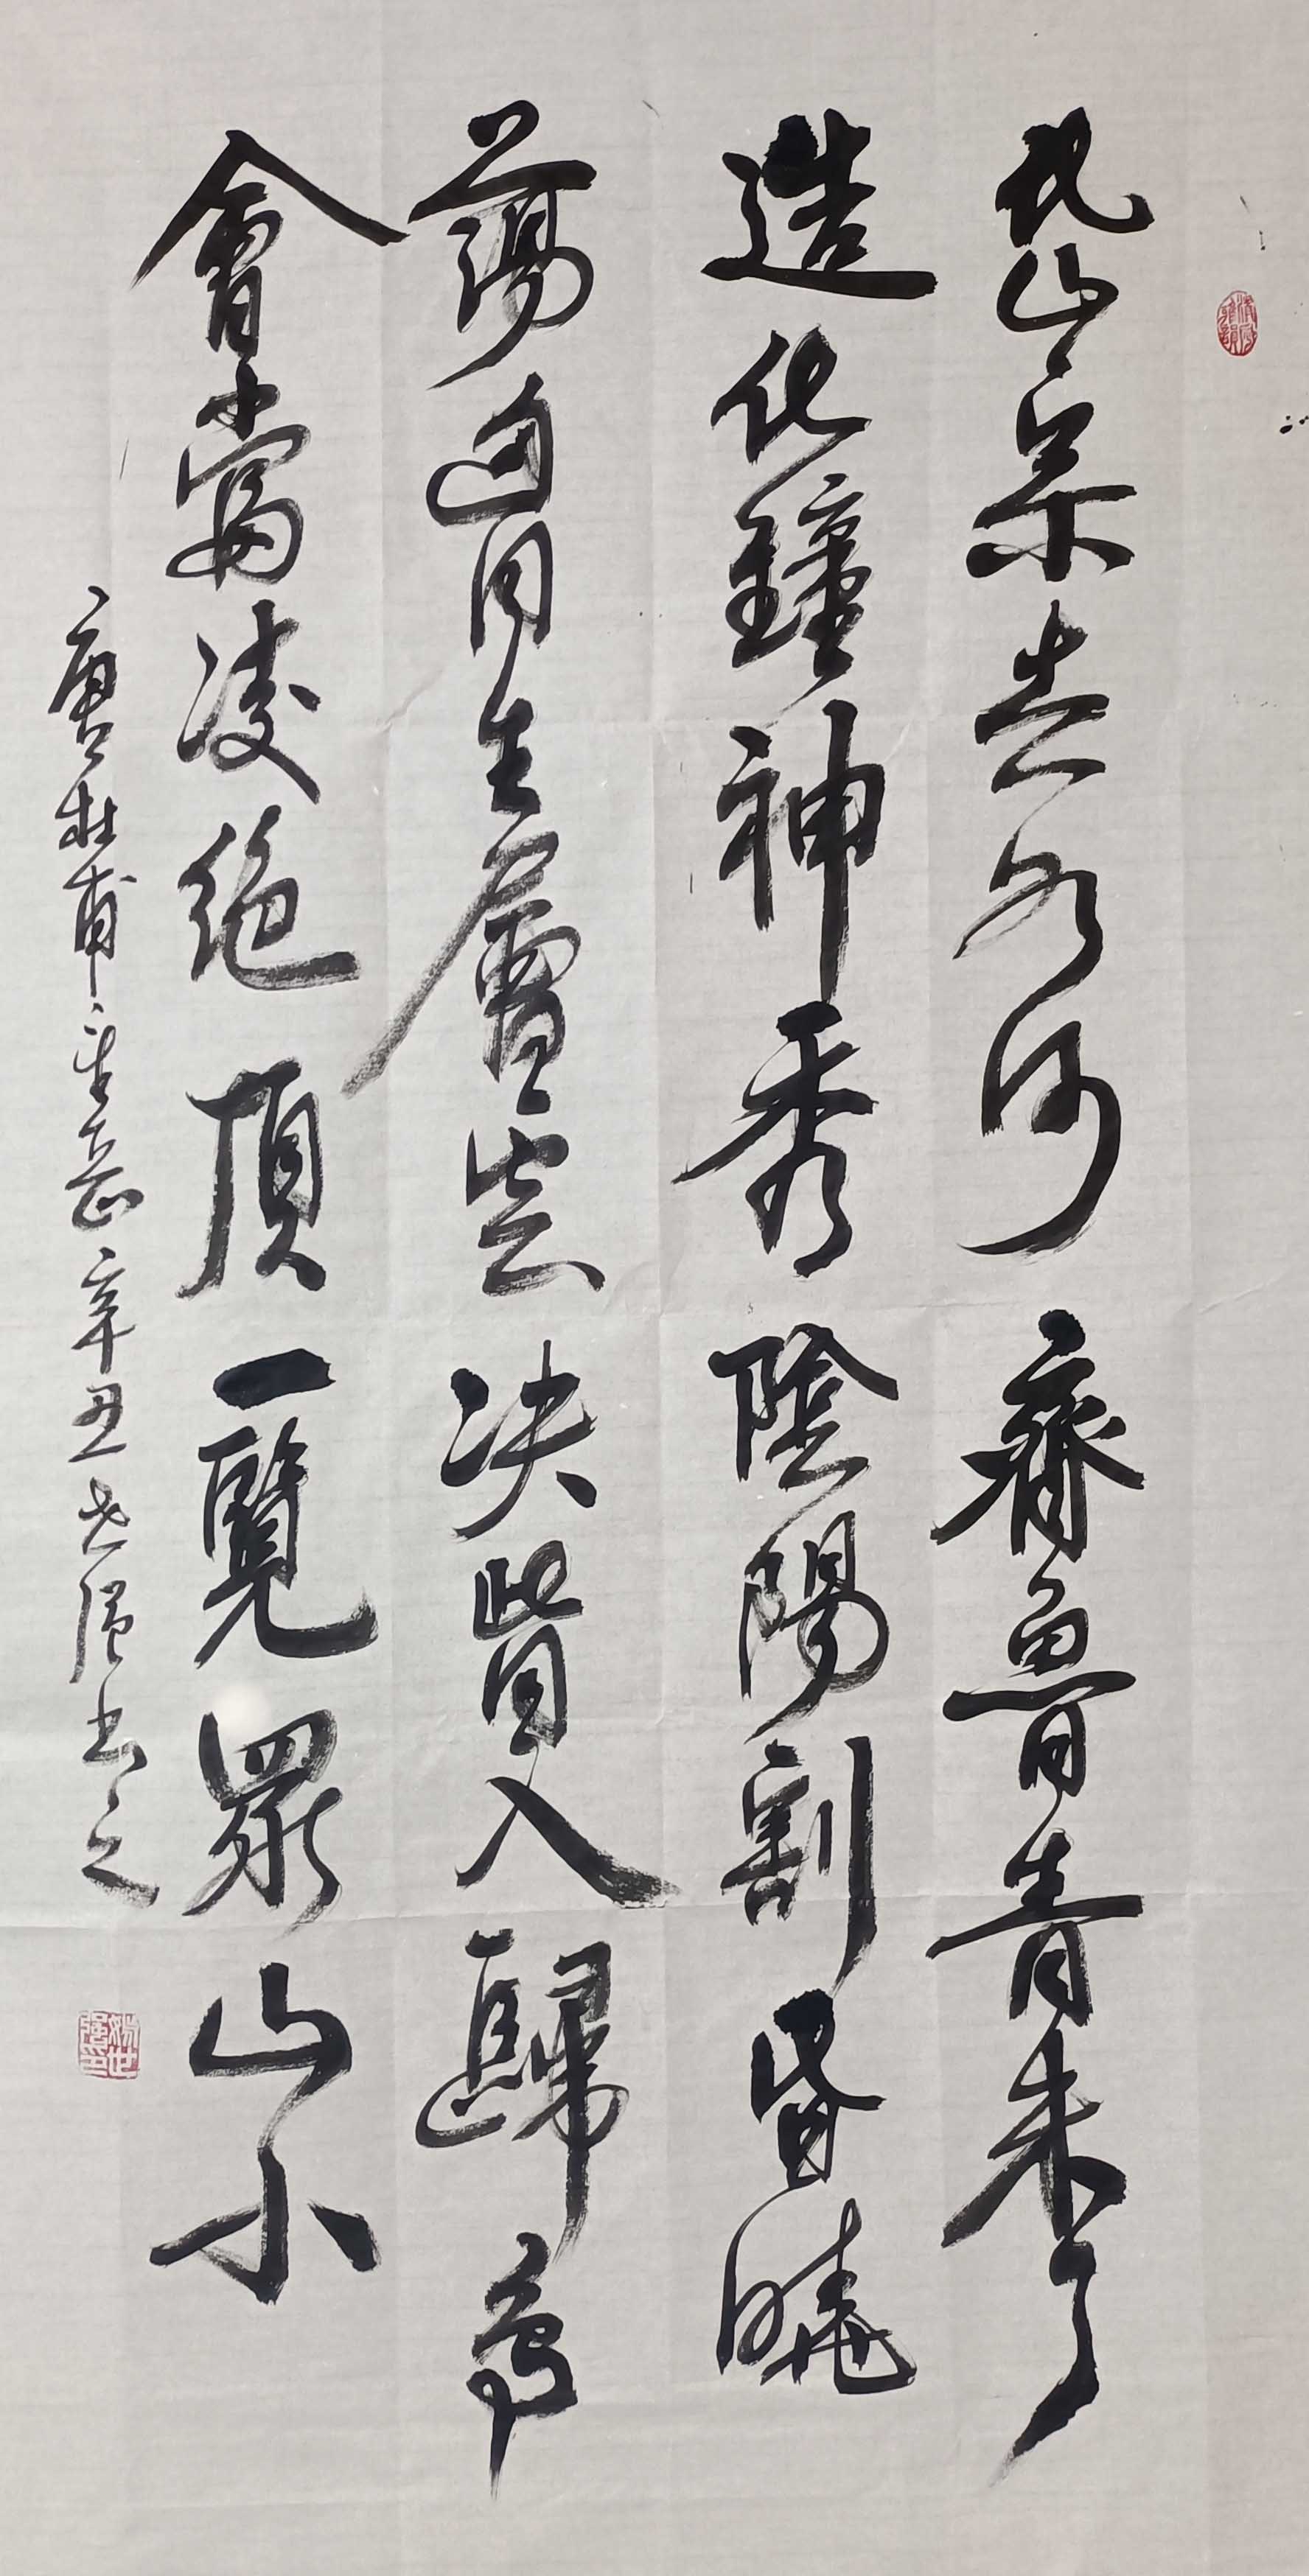 岱宗夫如何齊魯青未了
造化鐘神秀陰陽割昏曉
蕩匈同生層雲决眥入歸鳥
會當凌絕頂一覽眾山小
唐杜甫望岳辛丑世强書之